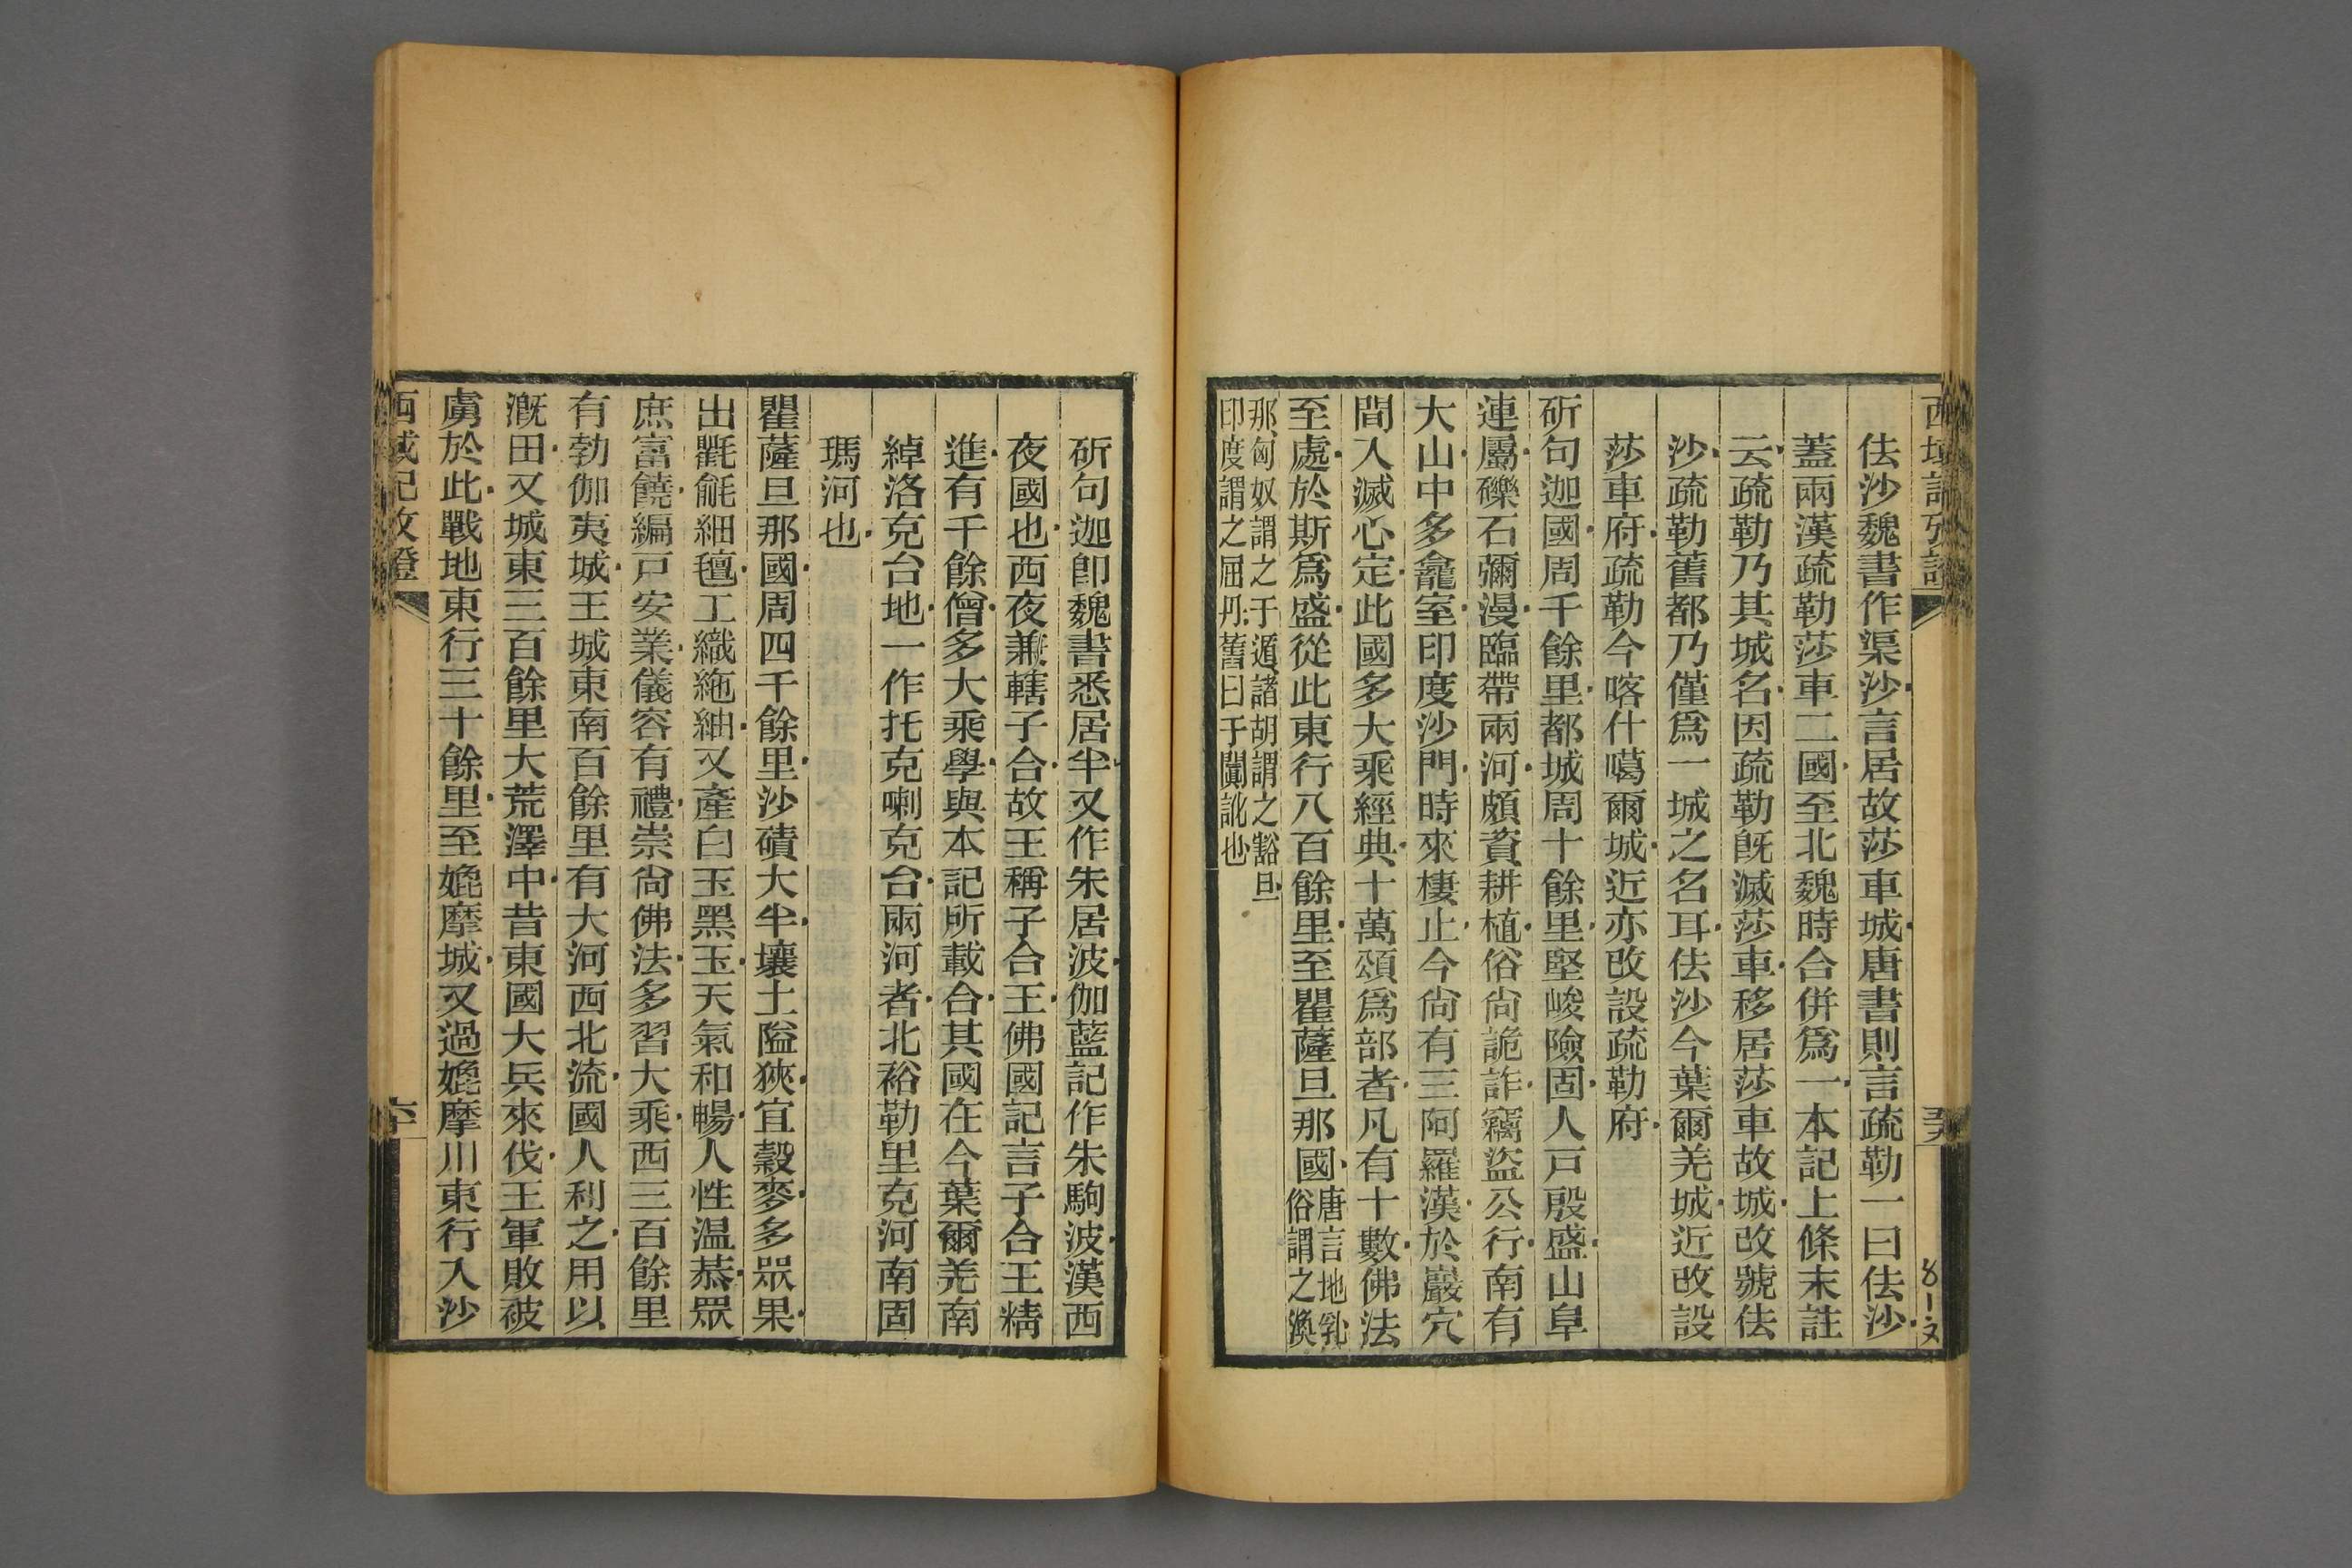 佉沙魏書作渠沙言居故莎車城唐書則言疏勒一曰佉沙
蓋兩漢疏勒莎車二國至北魏時合併爲一本記上條末註
云疏勒乃其城名因疏勒旣滅莎車移居莎車故城改號佉
沙疏勒舊都乃僅爲一城之名耳佉沙今葉爾羌城近改設
莎車府疏勒今喀什噶爾城近亦改設疏勒府
斫句迦國周千餘里都城周十餘里堅峻險固人戸殷盛山阜
連屬礫石彌漫臨帶兩河頗資耕植俗尙詭詐竊盜公行南有
大山中多龕室印度沙門時來棲止今尙有三阿羅漢於巖穴
間入滅心定此國多大乘經典十萬頌爲部者凡有十數佛法
至處於斯爲盛從此東行八百餘里至瞿薩旦那國唐言地乳俗謂之渙
那匈奴謂之于遁諸胡謂之豁旦
印度謂之屈丹舊曰于闐訛也
斫句迦卽魏書悉居半又作朱居波伽藍記作朱駒波漢西
夜國也西夜兼轄子合故王稱子合王佛國記言子合王精
進有千餘僧多大乘學與本記所載合其國在今葉爾羌南
綽洛克台地一作托克喇克台兩河者北裕勒里克河南固
瑪河也
瞿薩旦那國周四千餘里沙磧大半壤土隘狹宜穀麥多眾果
出氍毹細氈工織絁紬又產白玉黑玉天氣和暢人性温恭眾
庶富饒編戸安業儀容有禮崇尙佛法多習大乘西三百餘里
有勃伽夷城王城東南百餘里有大河西北流國人利之用以
漑田又城東三百餘里大荒澤中昔東國大兵來伐王軍敗被
虜於此戰地東行三十餘里至媲摩城又過媲摩川東行入沙
西域記攷證